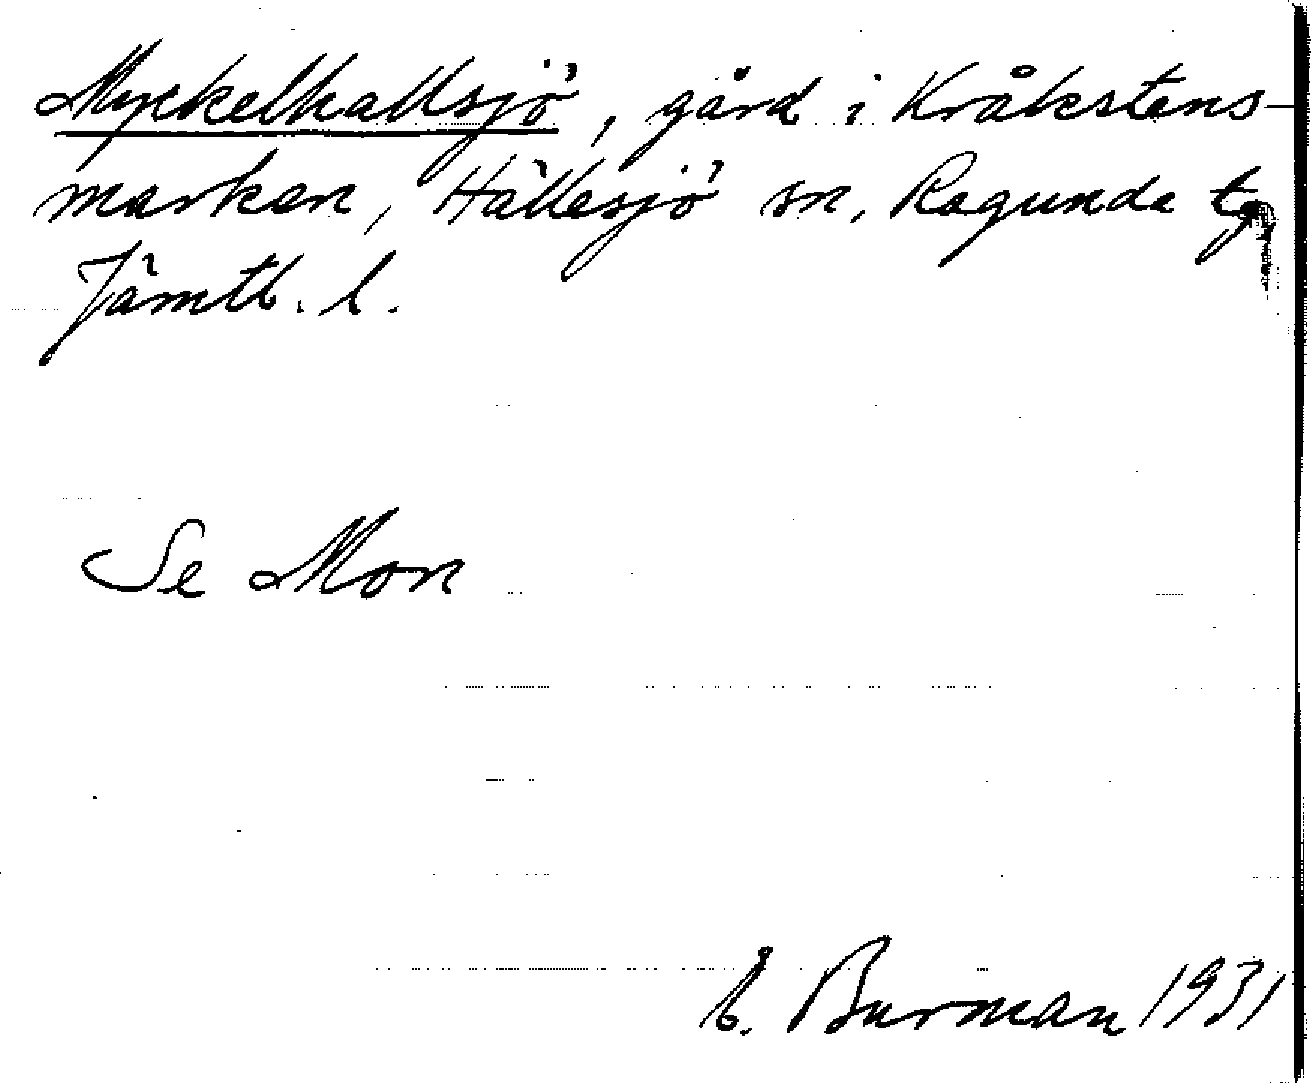 Myckelhallsjö, gård i Kråkstens-
marken, Hällesjö sn, Ragunda tg
Jämtl. l.
Se Mon
Burman 1931